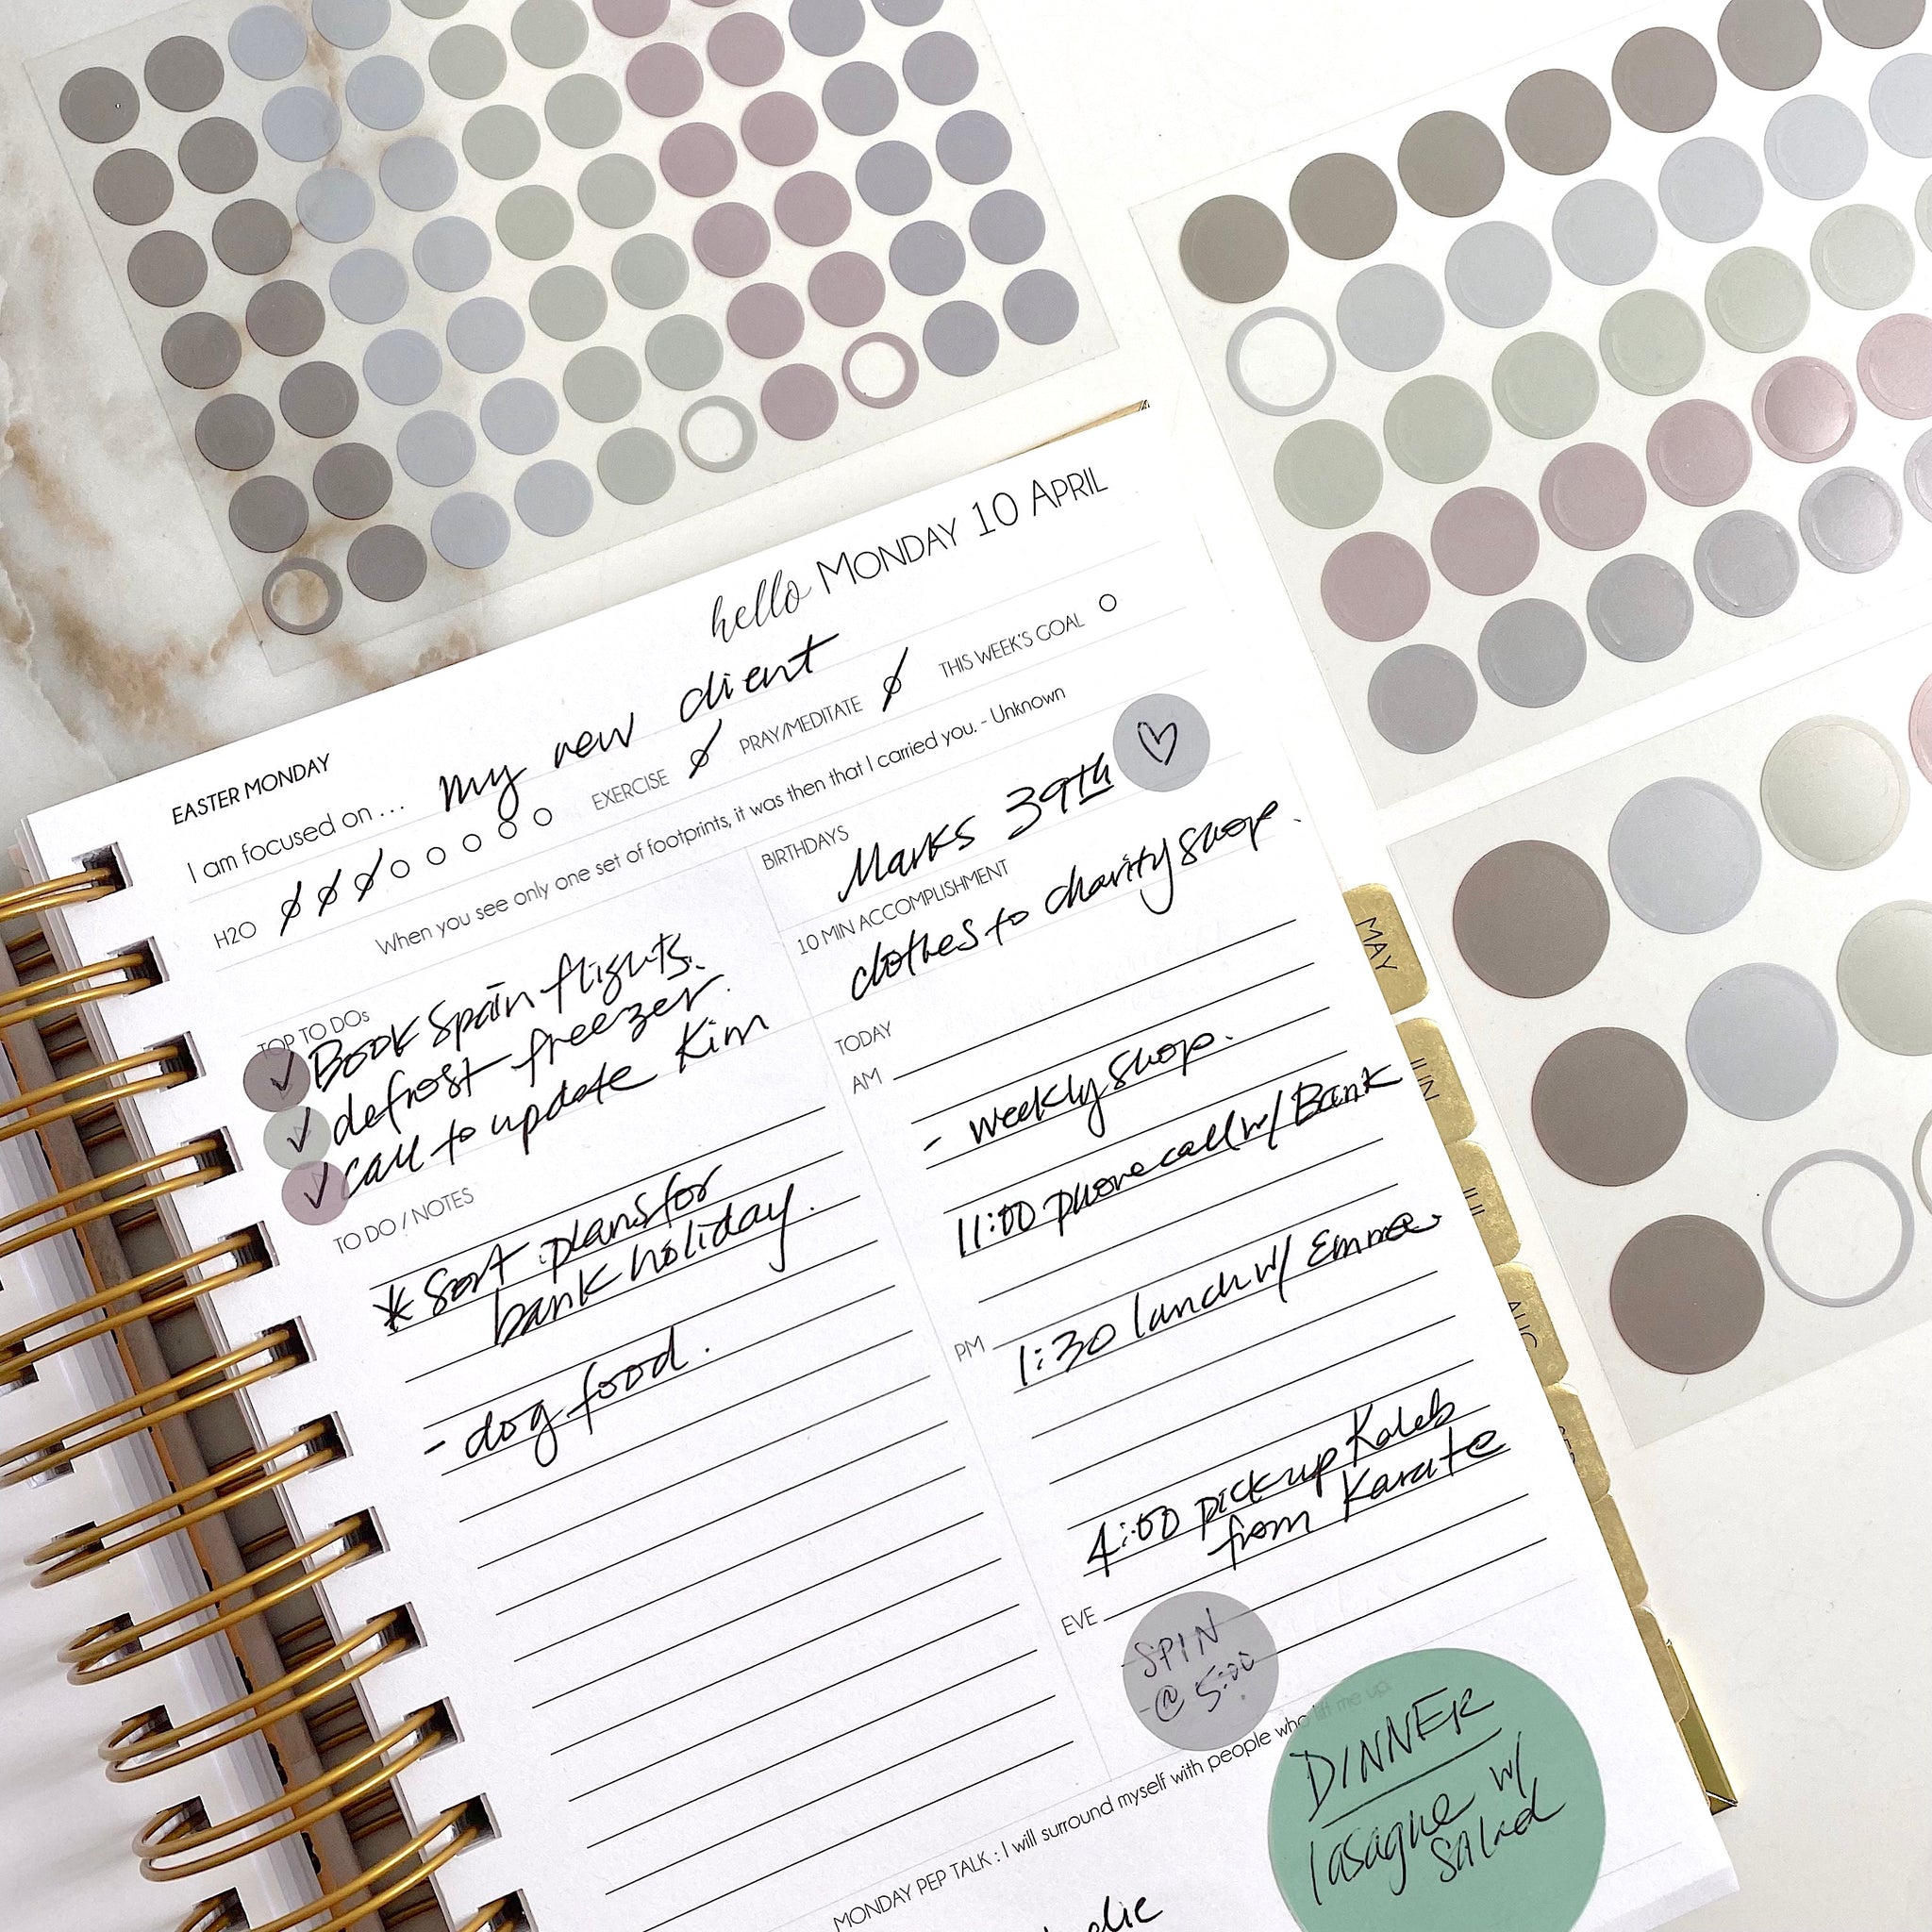 hello MONDAY 10 APRIL
EASTER MONDAY
I am focused on ... my new client
H2O EXERCISE PRAY/MEDITATE THIS WEEK'S GOAL
When you see only one set of footprints, it was then that I carried you. - Unknown
TOP TO DOs
Book Spain flights.
defrost freezer.
call to update Kim
TO DO / NOTES
* Sort plans for
bank holiday.
- dog food.
BIRTHDAYS
Marks 39th ♡
10 MIN ACCOMPLISHMENT
clothes to charity shop.
TODAY
AM
- weekly shop.
11:00 phonecall w/ Bank
PM
1:30 lunch w/ Emma.
4:00 pick up Kaleb
from Karate
EVE
SPIN
@ 5:00
MONDAY PEP TALK : I will surround myself with people who lift me up.
DINNER
lasagne w/
Salad
MAY
JUN
JUL
AUG
SEP